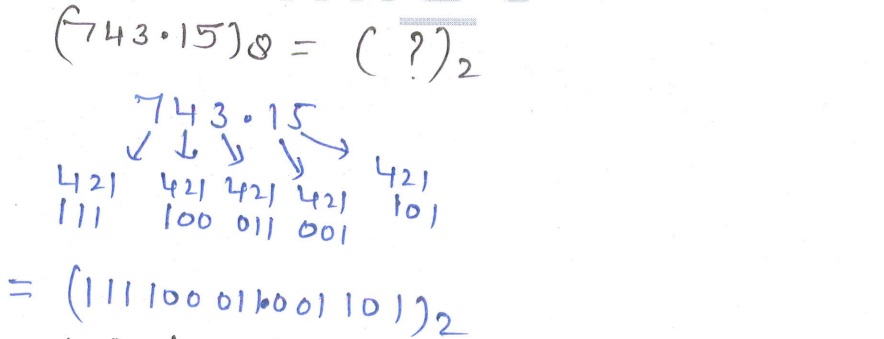 (743.15)8 = ( ? )2
743.15
421 421 421 421 421
111 100 011 001 101
= (111 100 011.001 101)2